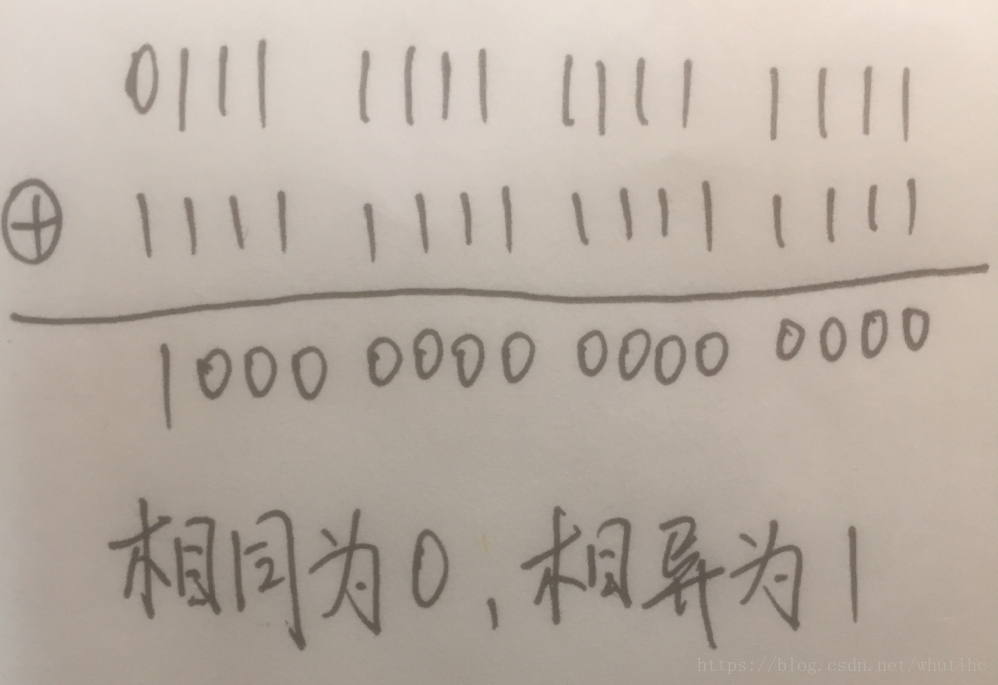 0111 1111 1111 1111
⊕ 1111 1111 1111 1111
1000 0000 0000 0000
相同为0,相异为1
https://blog.csdn.net/whutihc